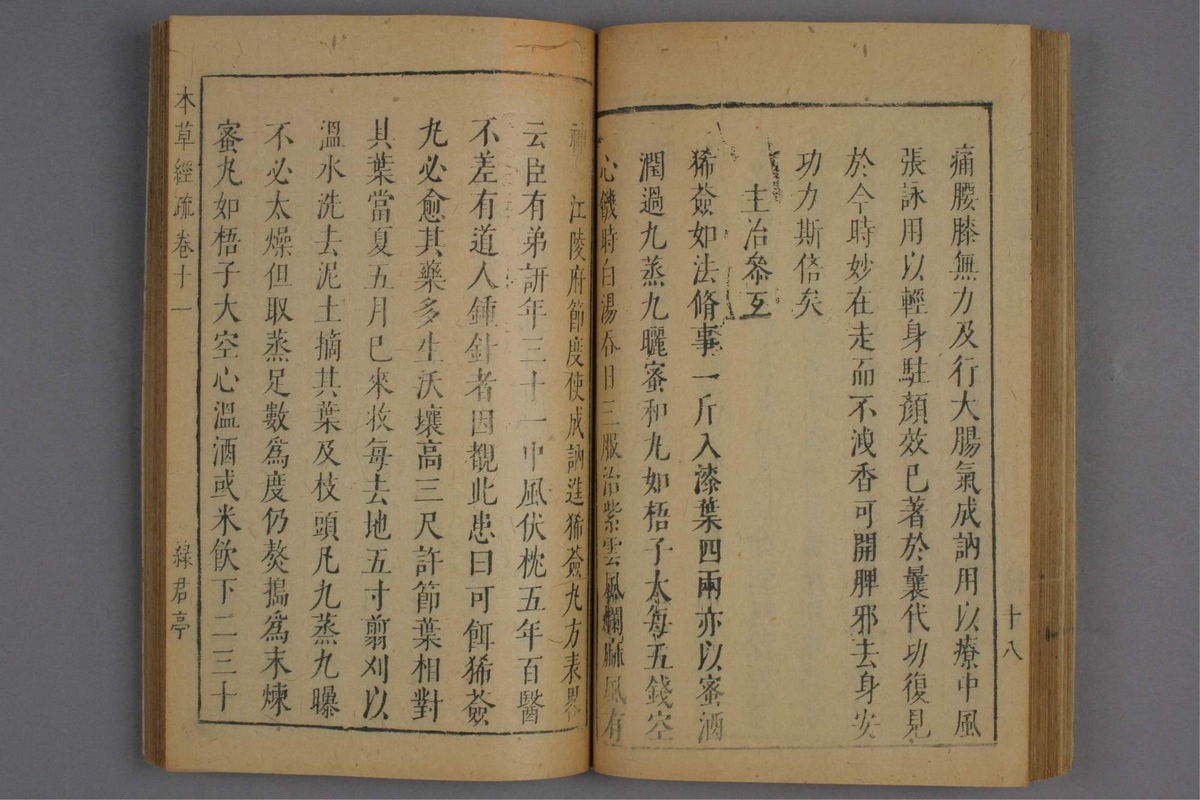 十八
痛腰膝無力及行大腸氣成訥用以療中風
張詠用以輕身駐顏效已著於曩代功復見
於今時妙在走而不洩香可開脾邪去身安
功力斯倍矣
主治參互
豨薟如法脩事一斤入漆葉四兩亦以蜜酒
潤過九蒸九曬蜜和丸如梧子大每五錢空
心饑時白湯吞日三服治紫雲風爛麻風有
神 江陵府節度使成訥進豨薟丸方表畧
云臣有弟訮年三十一中風伏枕五年百醫
不差有道人鍾針者因覩此患曰可餌豨薟
丸必愈其藥多生沃壤高三尺許節葉相對
其葉當夏五月已來收每去地五寸剪刈以
溫水洗去泥土摘其葉及枝頭凡九蒸九曝
不必太燥但取蒸足數爲度仍熬搗爲末煉
蜜丸如梧子大空心溫酒或米飲下二三十
本草經疏卷十一
綠君亭